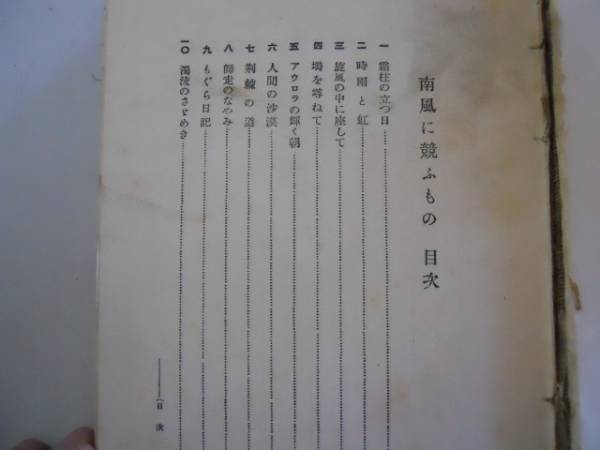 南風に競ふもの 目次
一 霜柱の立つ日
二 時雨と虹
三 旋風の中に座して
四 塒を尋ねて
五 アウロラの輝く朝
六 人間の沙漠
七 荊棘の道
八 師走のなやみ
九 もぐら日記
一〇 濁流のさゞめき
(目次